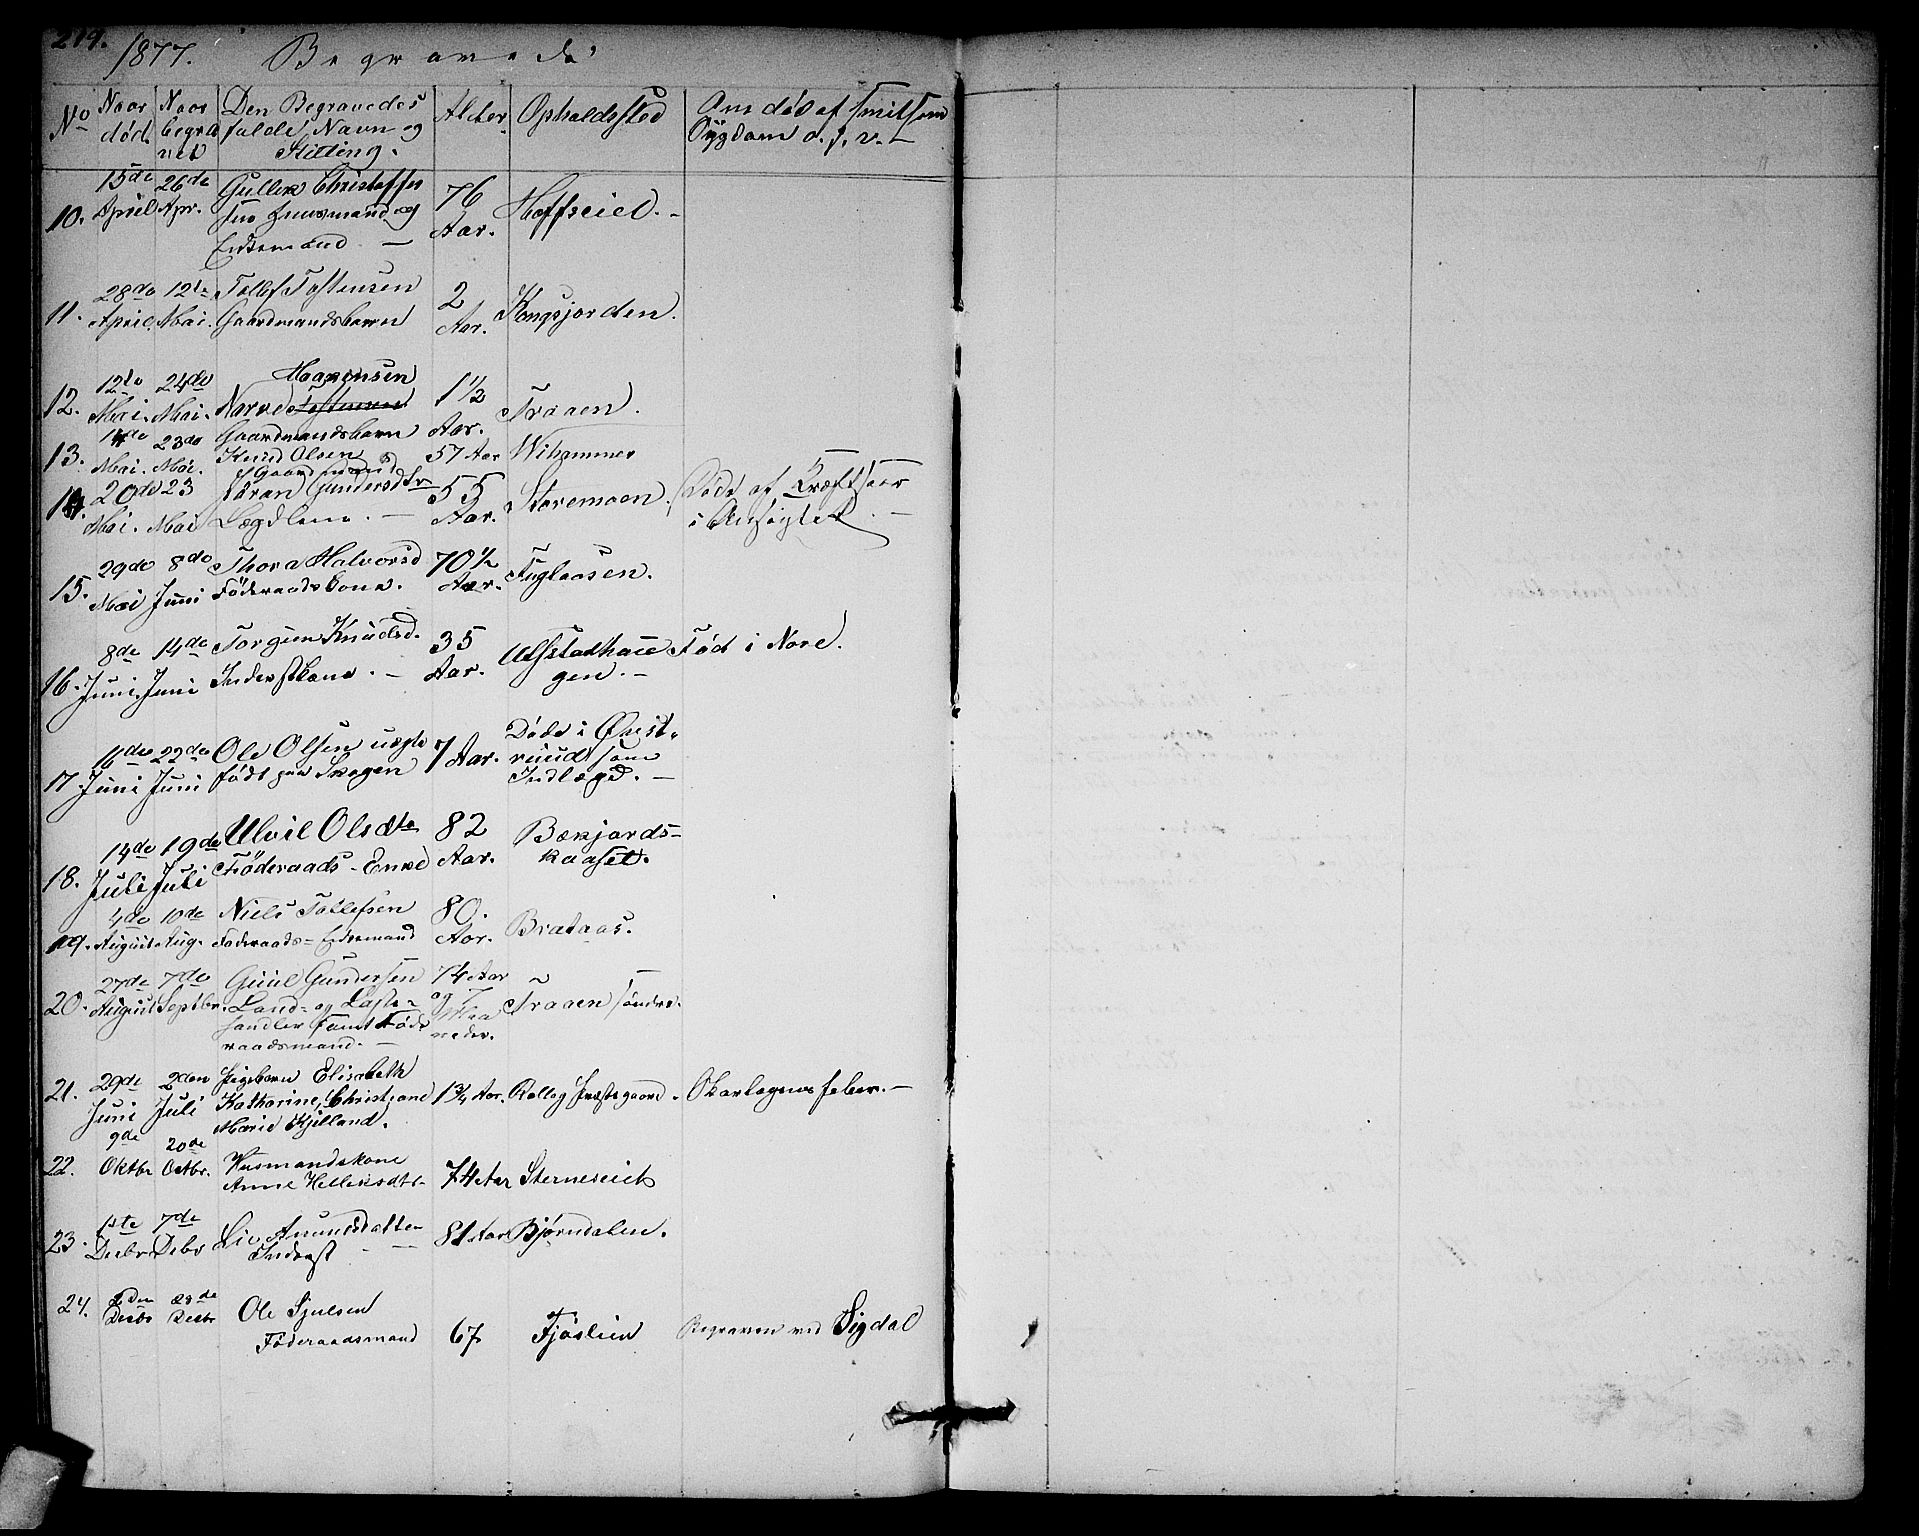 219.
1877. Begravede
No Naar død. Naar begravet Den Begravedes fulde Navn og Stilling. Alder. Opholdssted Om død af smitsom Sygdom o. s. v. —
10. 15de April 26de Apr. Gullik Christoffersen Huusmand og Enkemand — 76 Aar. Hoffseied. —
11. 28de April. 12te Mai. Tollef Tostensen Gaardmandsbarn 2 Aar. Kongsjorden.
12. 12te Mai. 24de Mai. Narve Tostensen Haagensen Gaardmandsbarn 1 1/2 Aar. Traaen.
13. 14de Mai. 23de Mai. Knud Olsen Gaardmand 57 Aar Wihammer
14. 20de Mai. 23 Mai Jøran Gundersdtr Lægdlem. — 55 Aar. Storemoen. Døde af Kræftsaar i Ansigtet. —
15. 29de Mai 8de Juni Thora Halvorsd Föderaadskone. 70 1/2 Aar. Fuglaasen.
16. 8de Juni. 14de Juni Torgun Knudsd. Inderstkone. — 35 Aar. Ulfstadhaugen. — Född i Nore.
17. 16de Juni 22de Juni Ole Olsen uægte født paa Skogen 7 Aar. Døde i Qvistruud som Indlægd. —
18. 14de Juli 19de Juli Ulvil Olsdtr Föderaads-Enke 82 Aar. Bækjordskaaset.
19. 4de August 10de Aug. Niels Tollefsen Föderaads-Enkemand 80. Aar. Brataas.
20. 27de August 7de Septbr. Guul Gundersen Land- og Lastehandler samt Föderaadsmand. — 74 Aar og 7 Maaneder. Traaen søndre.
21. 29de Juni 2den Juli Pigebarn Elisabeth Katharine, Christiane Marie Kjelland. 1 3/4 Aar. Rollag Præstegaard. Skarlagensfeber. —
22. 9de Oktbr 20de Octbr. Husmandskone Anne Helleksdtr 74 Aar Sterneseiet
23. 1ste Decbr 7de Debr Liv Amundsdatter Inderst — 81 Aar Bjørndalen.
24. 2den Decbr 28de Decbr Ole Sjulsen Föderaadsmand 67 Fjøslien Begraven ved Sigdal